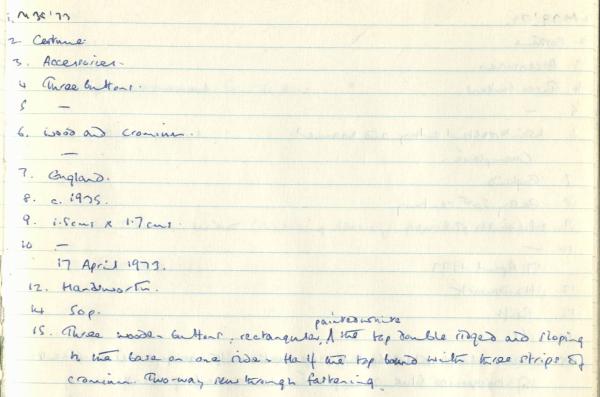 1. M38'73
2 Costume.
3. Accessories.
4 Three buttons.
5 —
6. Wood and cromium.
—
7. England.
8. c. 1935.
9. 1.5cms x 1.7cms.
10 —
17 April 1973.
12. Handsworth.
14 50p.
painted white
15. Three wooden buttons, rectangular, ∧ the top double ridged and sloping
to the base on one side. Half the top bound with three strips of
cromium. Two-way sew through fastening.